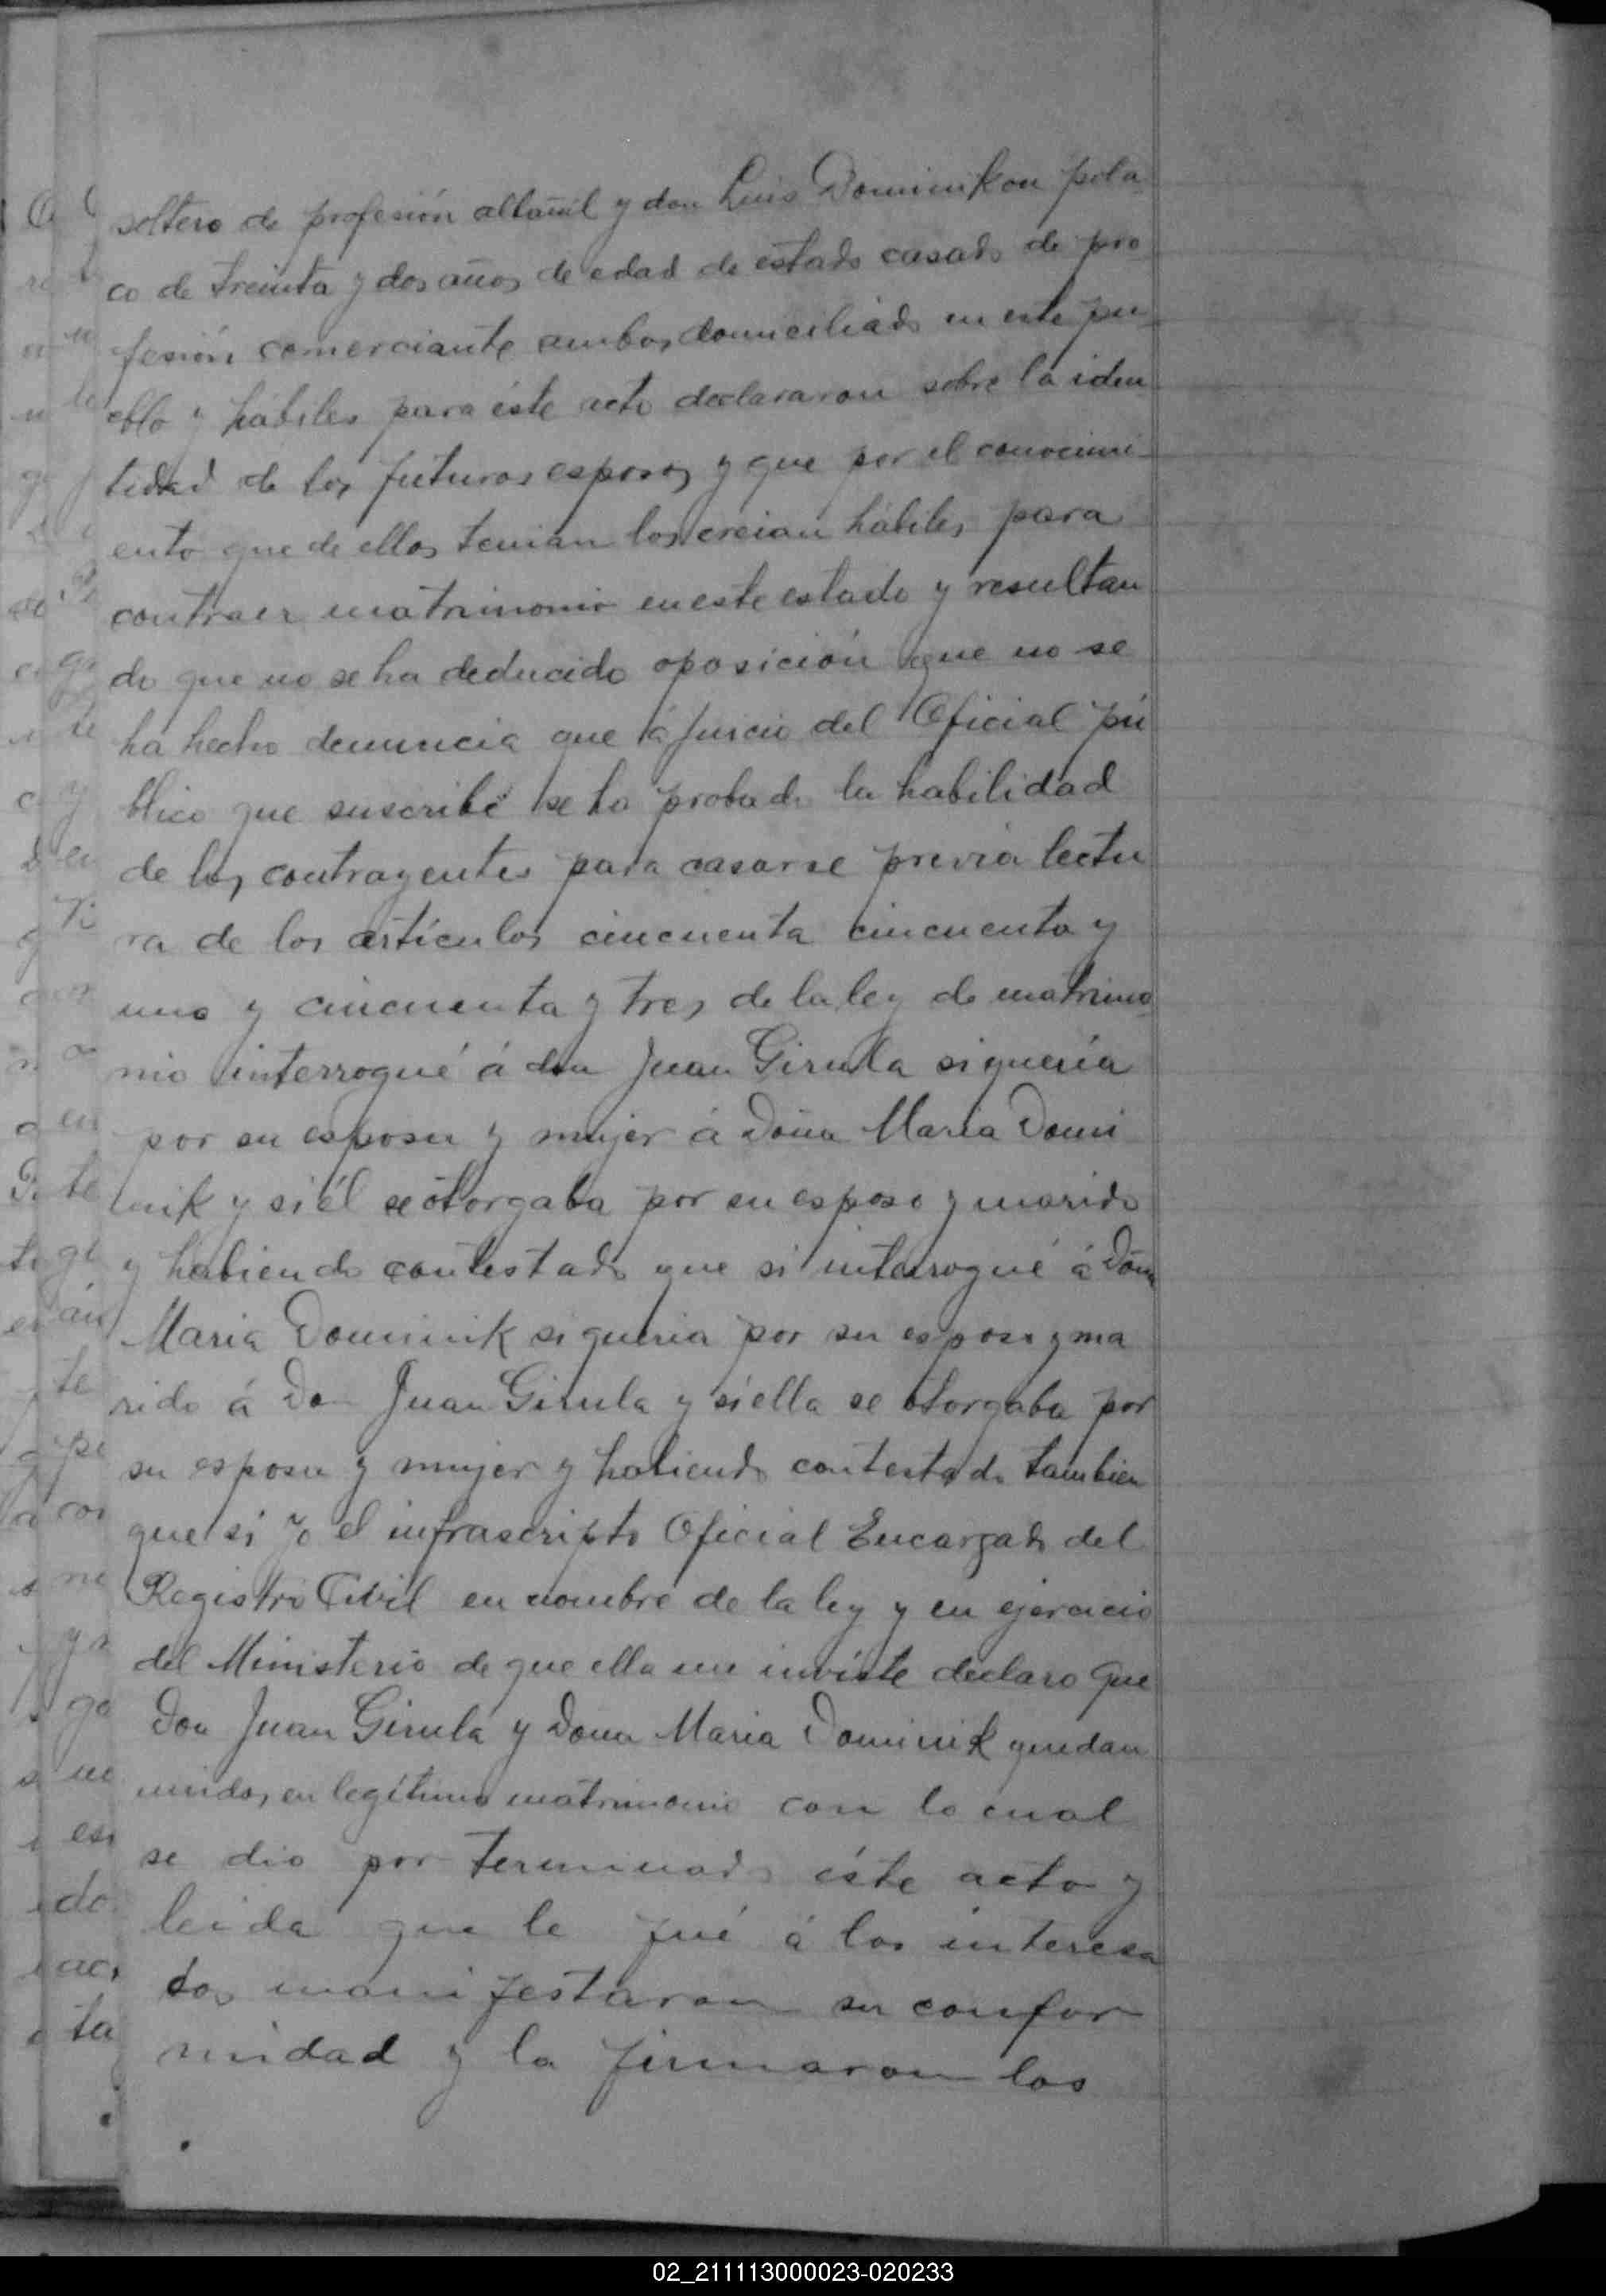 soltero de profesión albañil y don Luis Dominikon pola
co de treinta y dos años de edad de estado casado de pro
fesión comerciante ambos domiciliado en este pu
eblo y hábiles para éste acto declararon sobre la iden
tidad de los futuros esposos y que por el conocimi
ento que de ellos tenian los creian hábiles para
contraer matrimonio en este estado y resultan
do que no se ha deducido oposición que no se
ha hecho denuncia que á juicio del Oficial pú
blico que suscribe se ha probado la habilidad
de los contrayentes para casarse previa lectu
ra de los artículos cincuenta cincuenta y
uno y cincuenta y tres de la ley de matrimo
nio interrogué á don Juan Girula si quería
por su esposa y mujer á Doña Maria Domi
nik y si él se otorgaba por su esposo y marido
y habiendo contestado que si interrogué á Doña
Maria Dominik si queria por su esposo y ma
rido á Don Juan Girula y si ella se otorgaba por
su esposa y mujer y habiendo contestado tambien
que si yo el infrascripto Oficial Encargado del
Registro Civil en nombre de la ley y en ejercicio
del Ministerio de que ella me inviste declaro que
Don Juan Girula y Doña Maria Dominik quedan
unidos en legítimo matrimonio con lo cual
se dio por terminado éste acto y
leida que le fué á los interesa
dos manifestaron su confor
midad y la firmaron los
02_211113000023-020233